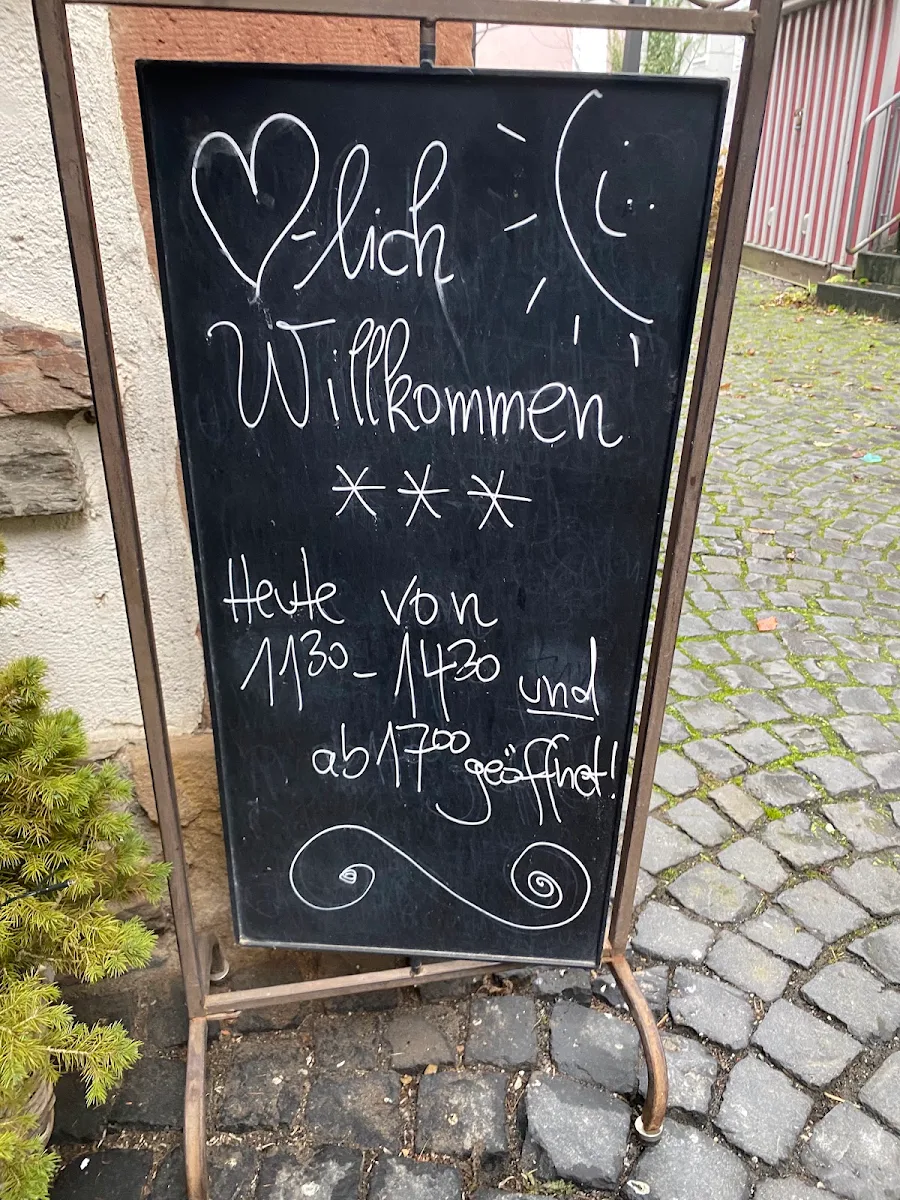 ♥-lich
Willkommen
***
Heute von
11³⁰ - 14³⁰ und
ab 17⁰⁰ geöffnet!